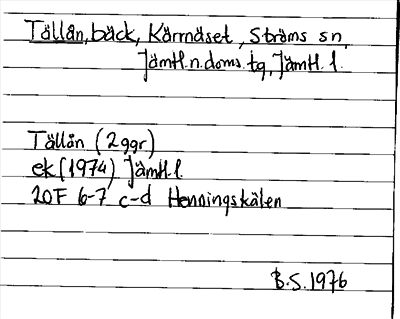 Tällån, bäck, Kärrnäset, Ströms sn,
Jämtl. n. doms. tg, Jämtl. l.
Tällån (2ggr)
ek (1974) Jämtl. l.
20F 6-7 c-d Henningskälen
B.S. 1976